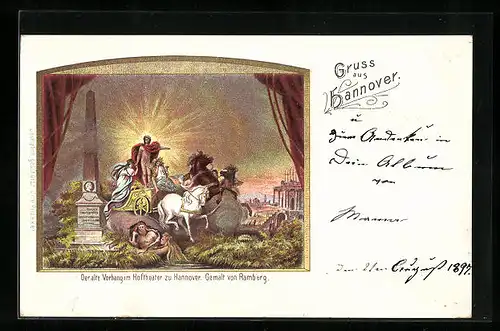 Gruss
aus
Hannover.
u
zum Andenken in
Dein Album
von
Mama
Der alte Vorhang im Hoftheater zu Hannover. Gemalt von Ramberg.
den August 1897.